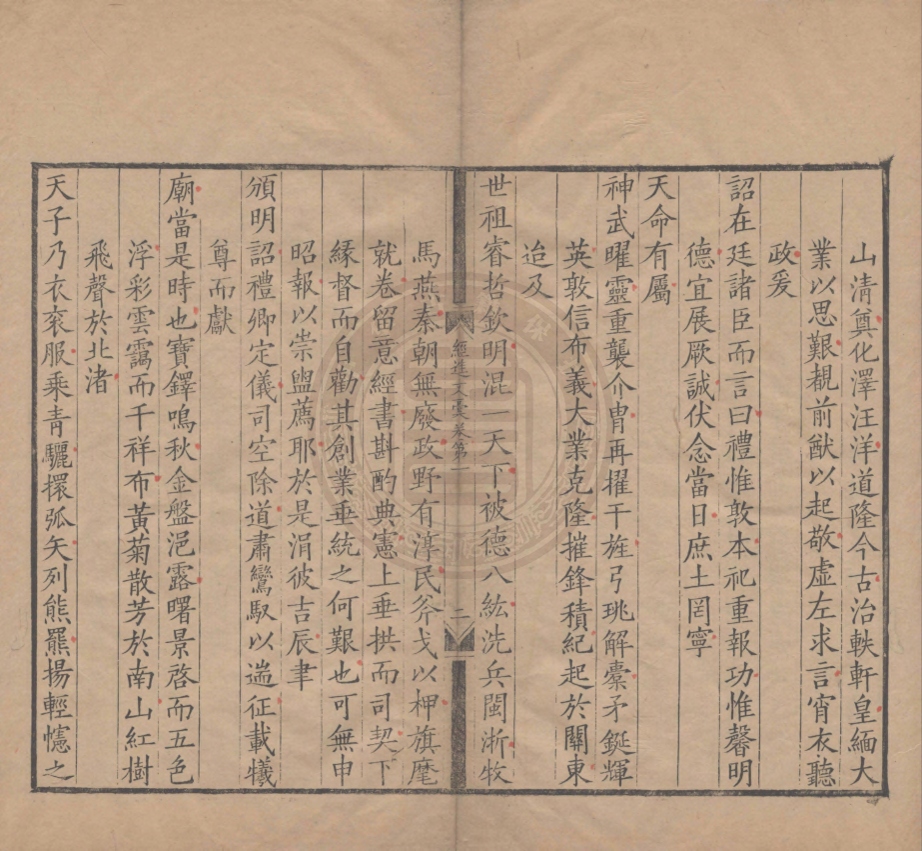 山清奠化澤汪洋道隆今古治軼軒皇緬大
業以思艱覩前猷以起敬虛左求言宵衣聽
政爰
詔在廷諸臣而言曰禮惟敦本祀重報功惟馨明
德宜展厥誠伏念當日庶土罔寧
天命有屬
神武曜靈重襲介冑再擢干旌弓珧解橐矛鋋輝
英敦信布義大業克隆摧鋒積紀起於關東
迨及
世祖睿哲欽明混一天下被德八紘洗兵閩浙牧
經進文稾卷第一
二
馬燕秦朝無廢政野有淳民斧戈以柙旗麾
就卷留意經書斟酌典憲上垂拱而司契下
緣督而自勸其創業垂統之何艱也可無申
昭報以崇盥薦耶於是涓彼吉辰聿
頒明詔禮卿定儀司空除道肅鸞馭以遄征載犧
尊而獻
廟當是時也寶鐸鳴秋金盤浥露曙景啓而五色
浮彩雲靄而千祥布黃菊散芳於南山紅樹
飛聲於北渚
天子乃衣衮服乘青驪擐弧矢列熊羆揚輕幰之